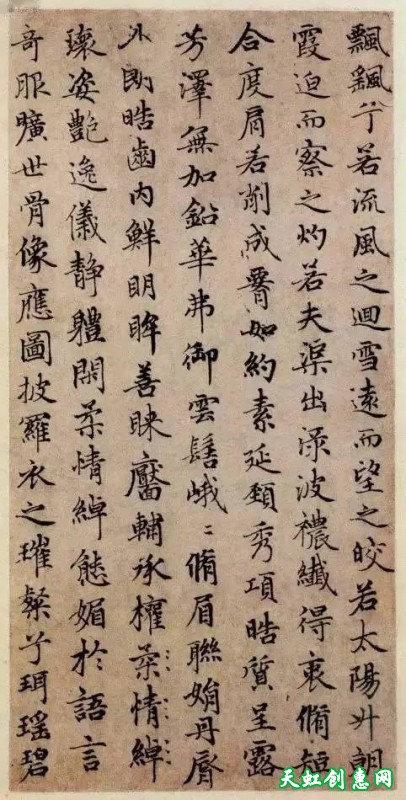 飄颻兮若流風之迴雪遠而望之皎若太陽升朝
霞迫而察之灼若夫渠出渌波襛纖得衷脩短
合度肩若削成腰如約素延頸秀項皓質呈露
芳澤無加鉛華弗御雲髻峨〻脩眉聯娟丹脣
外朗皓齒內鮮明眸善睞靨輔承權柔情綽
瓌姿艷逸儀靜體閑柔情綽態媚於語言
奇服曠世骨像應圖披羅衣之璀粲兮珥瑤碧
天虹创意网